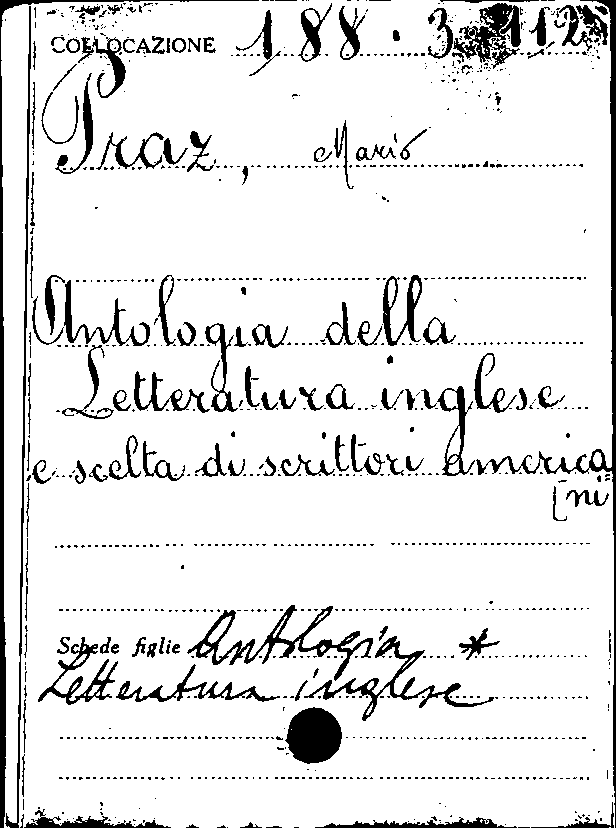 COLLOCAZIONE 188.3.112
Praz, Mario
Antologia della
Letteratura inglese
e scelta di scrittori america
[ni
Schede figlie Antologia *
Letteratura inglese